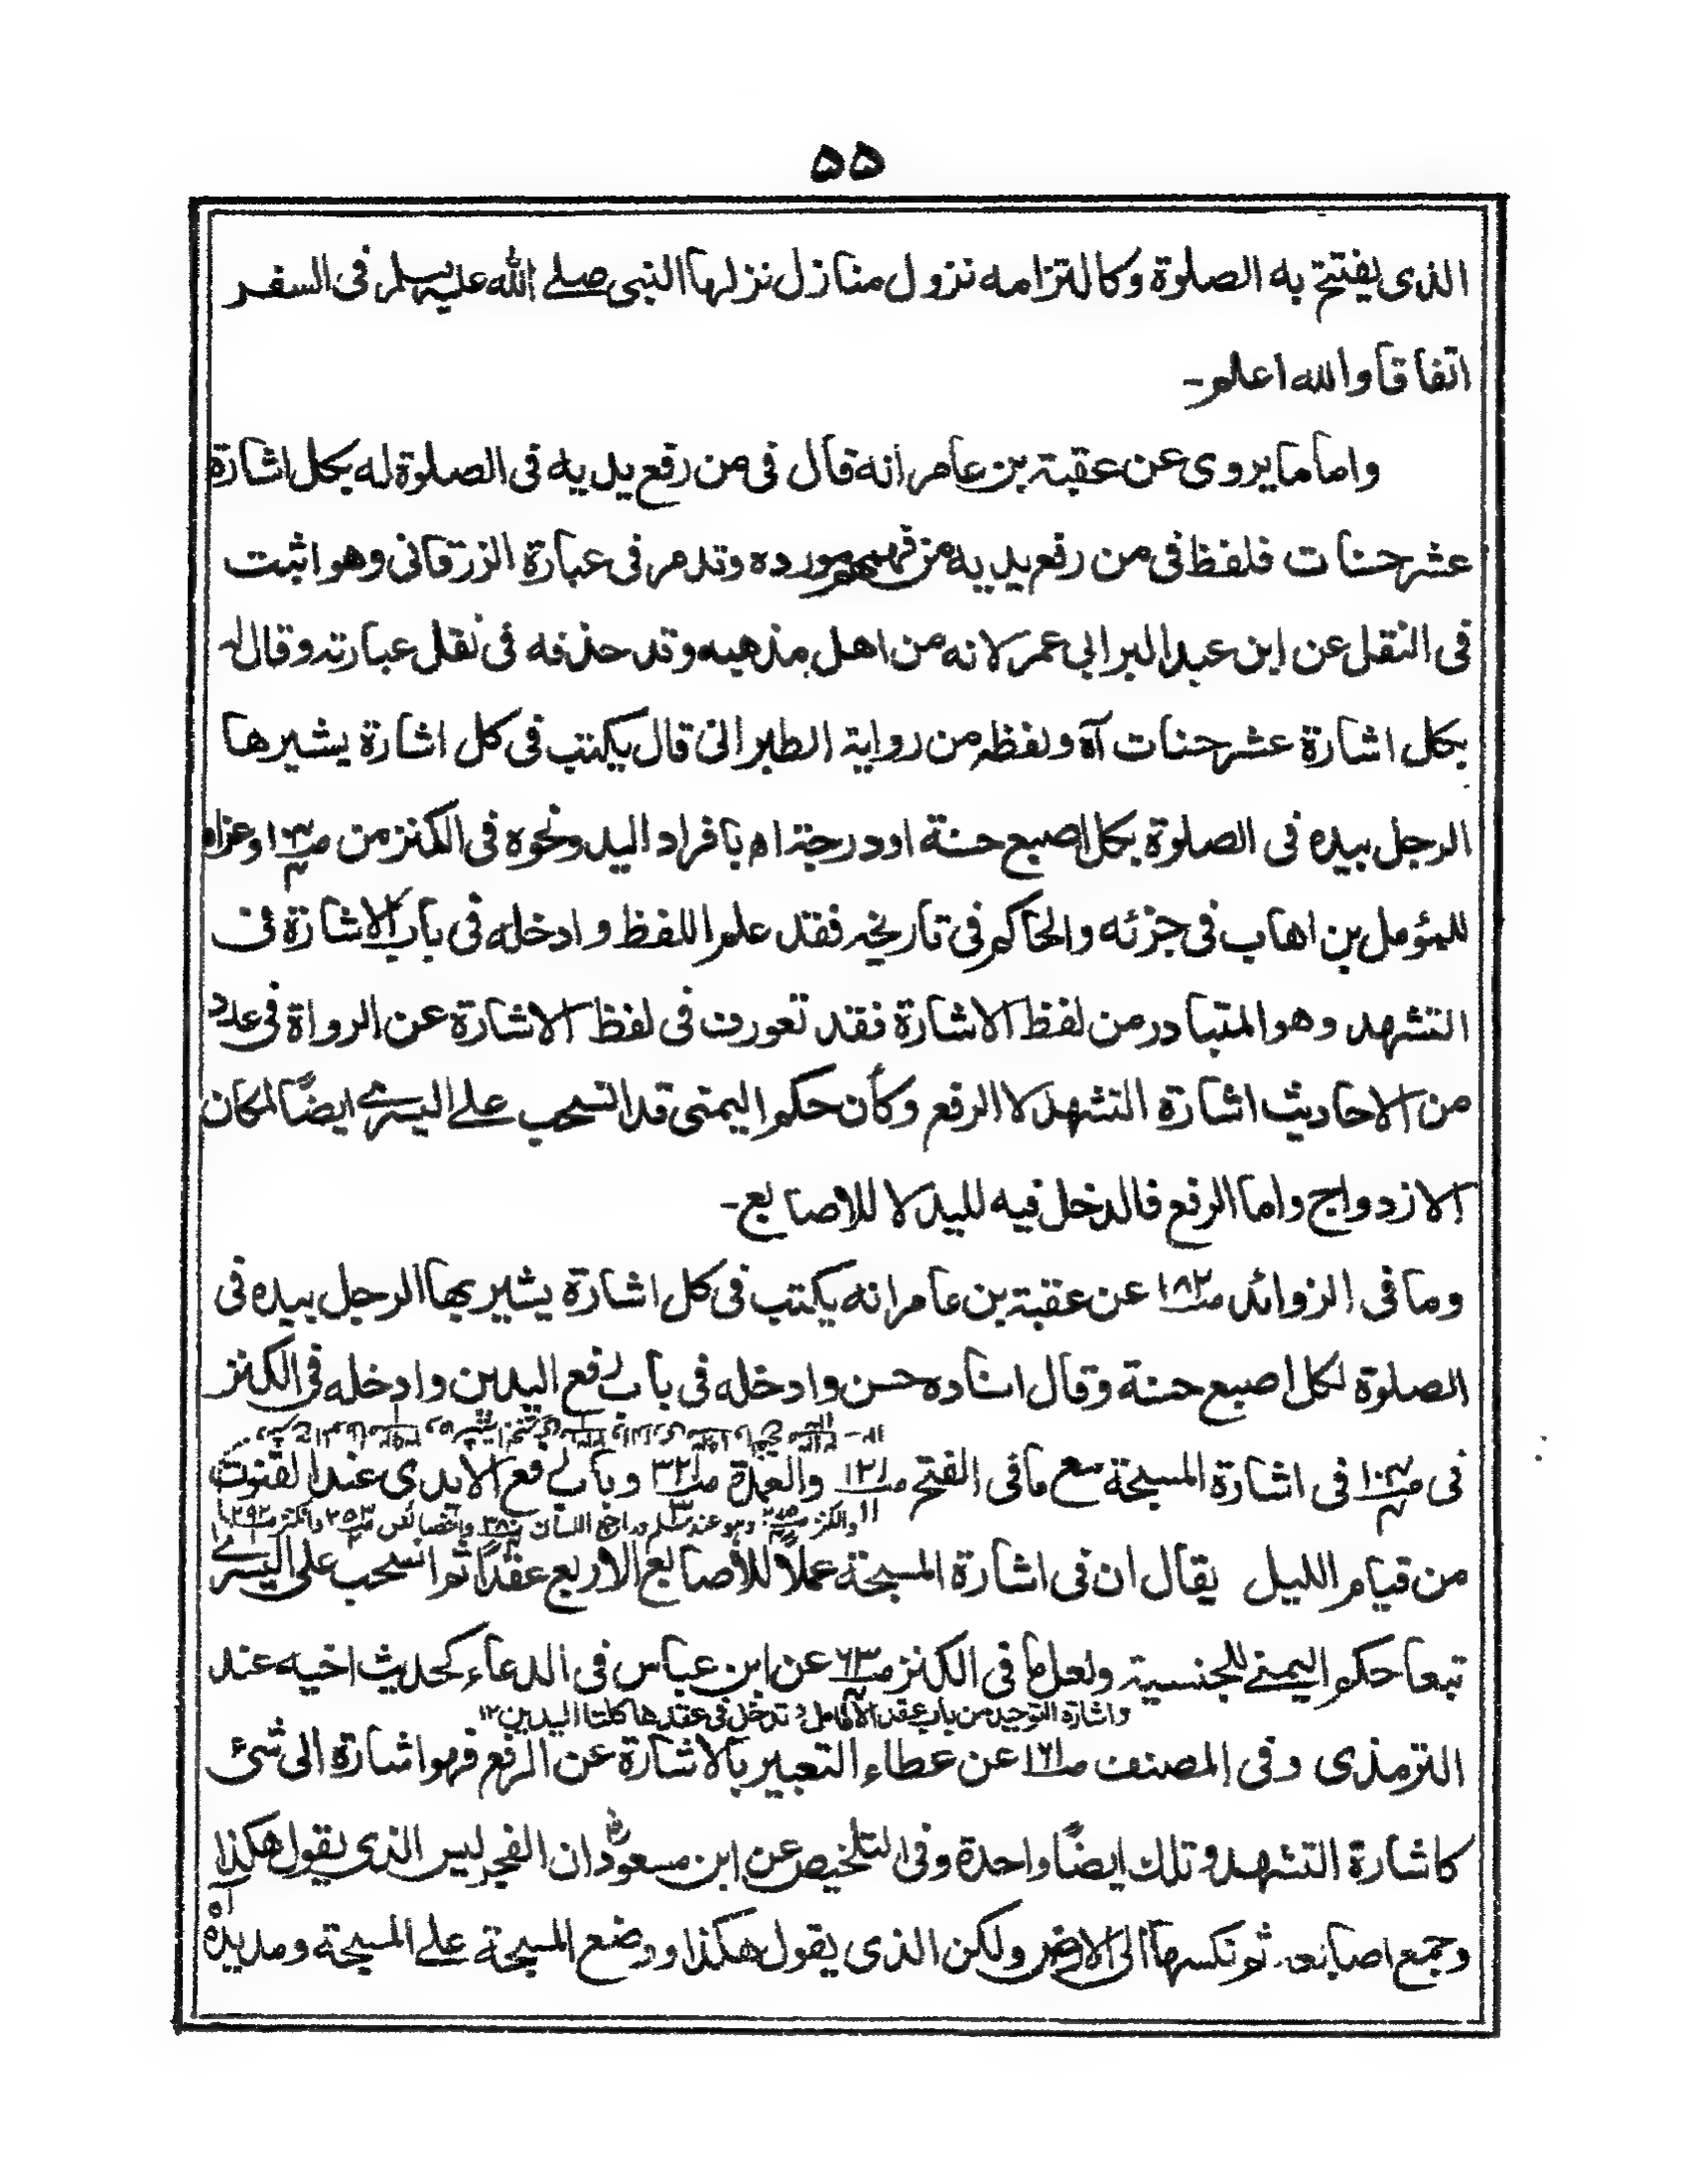 ۵۵
الذی یفتتح به الصلوة وکالتزامه نزول منازل نزلها النبی صلے الله علیه وسلم فی السفر
اتفاقا والله اعلم۔
واما ما یروی عن عقبة بن عامر انه قال فی من رفع یدیه فی الصلوة له بکل اشارة
عشر حسنات فلفظ فی من رفع یدیه من فهم مورده وقد مر فی عبارة الزرقانی وهو اثبت
فی النقل عن ابن عبد البر ابی عمر لانه من اهل مذهبه وقد حذفه فی نقل عبارته وقال له
بکل اشارة عشر حسنات آه ولفظه من روایة الطبرانی قال یکتب فی کل اشارة یشیرها
الرجل بیده فی الصلوة بکل اصبع حسنة او درجة اه بافراد الید ونحوه فی الکنز من وعزاه
للمؤمل بن اهاب فی جزئه والحاکم فی تاریخه فقد علم اللفظ وادخله فی باب الاشارة فی
التشهد وهو المتبادر من لفظ الاشارة فقد تعورف فی لفظ الاشارة عن الرواة فی عدد
من الاحادیث اشارة التشهد لا الرفع وکأن حکم الیمنی قد انسحب علے الیسرے ایضًا لمکان
الازدواج واما الرفع فالدخل فیه للید لا للاصابع۔
وما فی الزوائد ص۱۸۲ عن عقبة بن عامر انه یکتب فی کل اشارة یشیر بها الرجل بیده فی
الصلوة لکل اصبع حسنة وقال اسناده حسن وادخله فی باب رفع الیدین وادخله فی الکنز
فی فی اشارة المسبحة مع ما فی الفتح ص۱۲۱ والعمدة ص۳۲ وباب رفع الایدی عند القنوت
من قیام اللیل یقال ان فی اشارة المسبحة عملاً للأصابع الاربع عقدًا ثم انسحب علی الیسرے
تبعا حکم الیمنے للجنسیة ولعل ما فی الکنز ص۶۳ عن ابن عباس فی الدعاء کحدیث اخیه عند
واشارة التوحید من باب عقد الأنامل تدخل فی عقدها کلتا الیدین ۱۲
الترمذی وفی المصنف ص۱۶۱ عن عطاء التعبیر بالاشارة عن الرفع فهو اشارة الی شئ
کاشارة التشهد وتلک ایضًا واحدة وفی التلخیص عن ابن مسعود ان الفجر لیس الذی یقول هکذا
وجمع اصابعه ثم نکسها الی الارض ولکن الذی یقول هکذا ووضع المسبحة علے المسبحة ومد یده اه